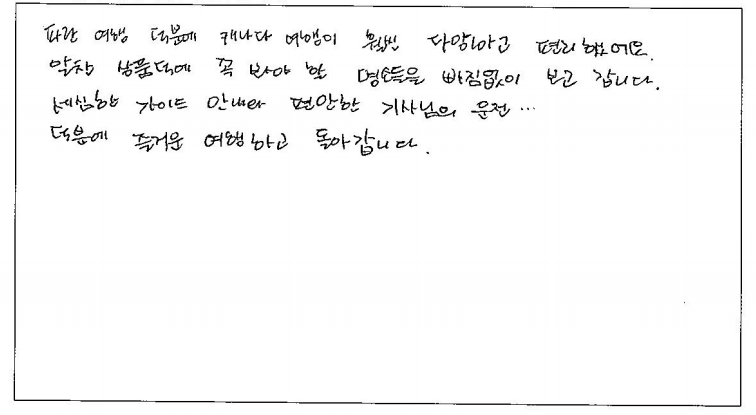 파란 여행 덕분에 캐나다 여행이 훨씬 다양하고 편리했어요.
알찬 상품덕에 꼭 봐야 할 명소들을 빠짐없이 보고 갑니다.
세심한 가이드 안내와 편안한 기사님의 운전…
덕분에 즐거운 여행하고 돌아갑니다.